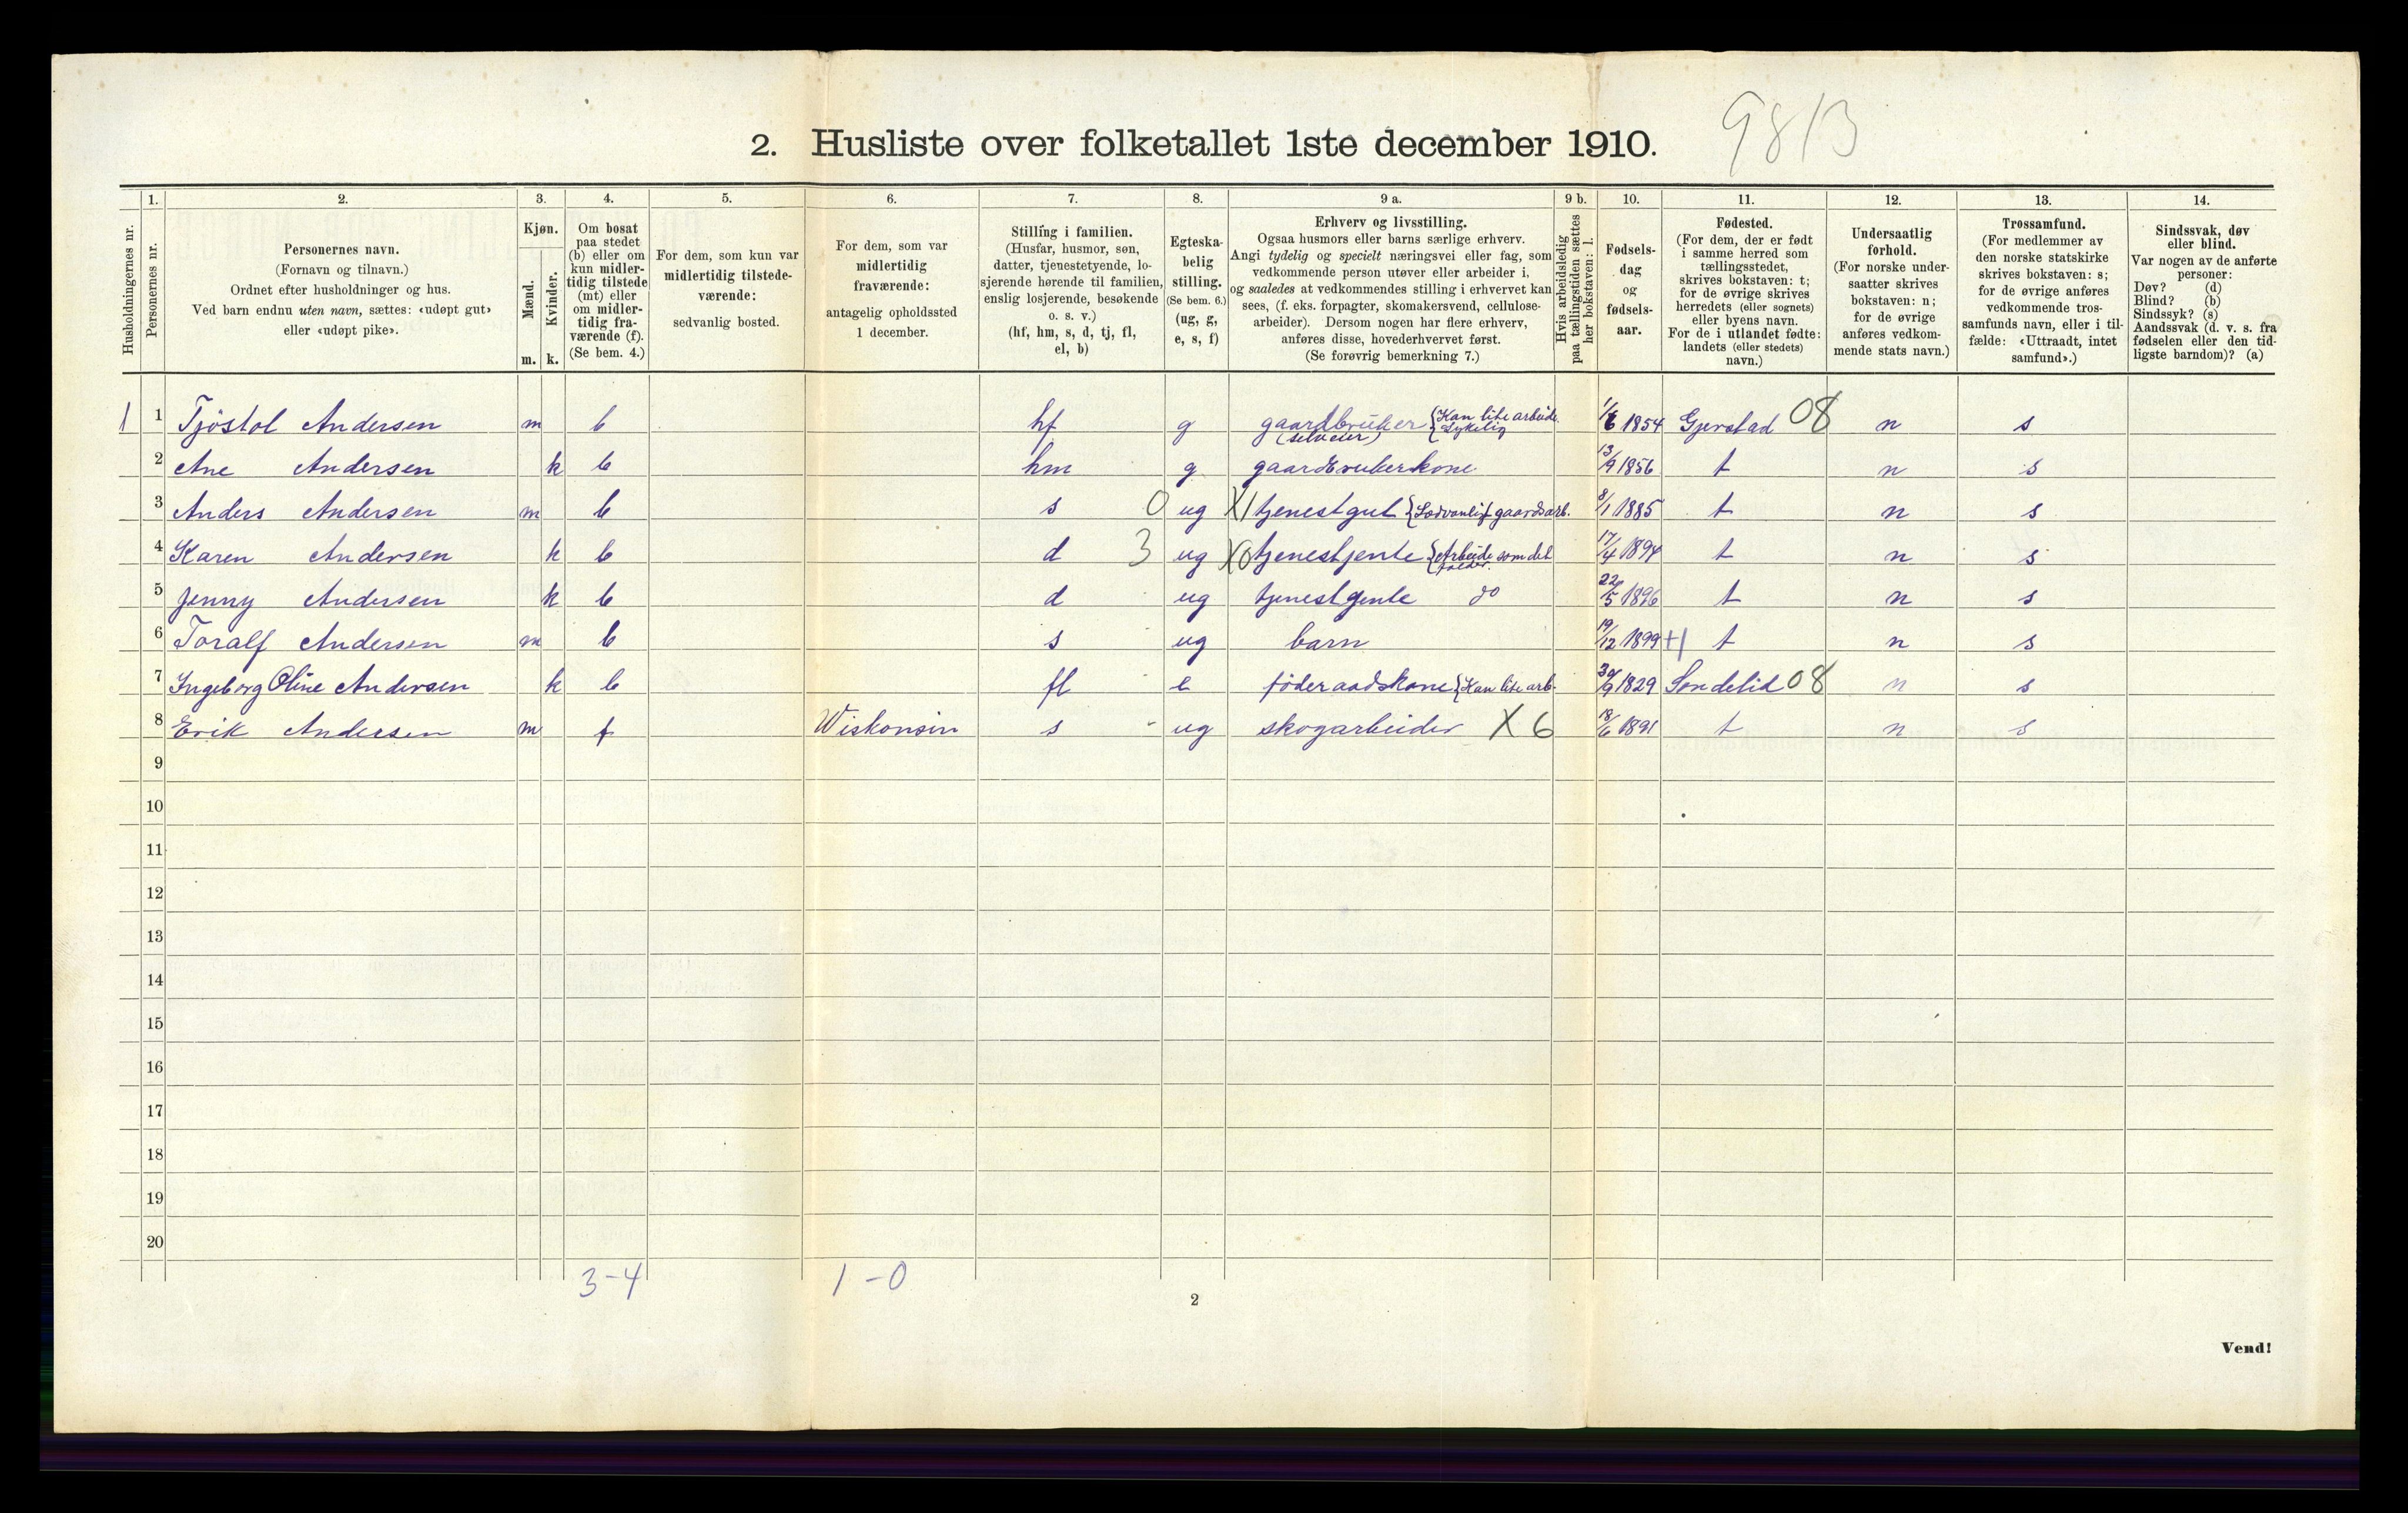 9813
2. Husliste over folketallet 1ste december 1910.
Husholdningernes nr.
1. Personernes nr.
2. Personernes navn.
(Fornavn og tilnavn.)
Ordnet efter husholdninger og hus.
Ved barn endnu uten navn, sættes: «udøpt gut»
eller «udøpt pike».
3. Kjøn.
Mænd. m.
Kvinder. k.
4. Om bosat
paa stedet
(b) eller om
kun midler-
tidig tilstede
(mt) eller
om midler-
tidig fra-
værende (f).
(Se bem. 4.)
5. For dem, som kun var
midlertidig tilstede-
værende:
sedvanlig bosted.
6. For dem, som var
midlertidig
fraværende:
antagelig opholdssted
1 december.
7. Stilling i familien.
(Husfar, husmor, søn,
datter, tjenestetyende, lo-
sjerende hørende til familien,
enslig losjerende, besøkende
o. s. v.)
(hf, hm, s, d, tj, fl,
el, b)
8. Egteska-
belig
stilling.
(Se bem. 6.)
(ug, g,
e, s, f)
9 a. Erhverv og livsstilling.
Ogsaa husmors eller barns særlige erhverv.
Angi tydelig og specielt næringsvei eller fag, som
vedkommende person utøver eller arbeider i,
og saaledes at vedkommendes stilling i erhvervet kan
sees, (f. eks. forpagter, skomakersvend, cellulose-
arbeider). Dersom nogen har flere erhverv,
anføres disse, hovederhvervet først.
(Se forøvrig bemerkning 7.)
9 b. Hvis arbeidsledig
paa tællingstiden sættes
her bokstaven: l.
10. Fødsels-
dag
og
fødsels-
aar.
11. Fødested.
(For dem, der er født
i samme herred som
tællingsstedet,
skrives bokstaven: t;
for de øvrige skrives
herredets (eller sognets)
eller byens navn.
For de i utlandet fødte:
landets (eller stedets)
navn.)
12. Undersaatlig
forhold.
(For norske under-
saatter skrives
bokstaven: n;
for de øvrige
anføres vedkom-
mende stats navn.)
13. Trossamfund.
(For medlemmer av
den norske statskirke
skrives bokstaven: s;
for de øvrige anføres
vedkommende tros-
samfunds navn, eller i til-
fælde: «Uttraadt, intet
samfund».)
14. Sindssvak, døv
eller blind.
Var nogen av de anførte
personer:
Døv? (d)
Blind? (b)
Sindssyk? (s)
Aandssvak (d. v. s. fra
fødselen eller den tid-
ligste barndom)? (a)
1 1 Tjöstol Andersen m b hf g gaardbruker (selveier) {Kan lite arbeide 1/6 1854 Gjerstad 08 n s
2 Ane Andersen k b hm g gaardbrukerkone 13/9 1856 t n s
3 Anders Andersen m b s 0 ug X1 tjenestgut gaardsarb. 8/1 1885 t n s
4 Karen Andersen k b d 3 ug X0 tjenestjente {Arbeide som det falder. 17/4 1894 t n s
5 Jenny Andersen k b d ug tjenestgente do 22/5 1896 t n s
6 Toralf Andersen m b s ug barn 19/12 1899 +1 t n s
7 Ingeborg Oline Andersen k b fl e föderaadskone {Kan lite arb. 30/9 1829 Søndelid 08 n s
8 Erik Andersen m f Wiskonsin s - ug skogarbeider X 6 18/6 1891 t n s
9
10
11
12
13
14
15
16
17
18
19
20
3-4 1-0
2
Vend!